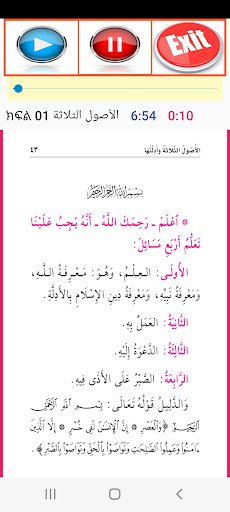 Exit
ክፍል 01 الأصول الثلاثة 6:54 0:10
الأُصُولُ الثَّلَاثَةُ وَأَدِلَّتُهَا ٤٣
بِسْمِ اللَّهِ الرَّحْمَنِ الرَّحِيمِ
* اعْلَمْ ـ رَحِمَكَ اللَّهُ ـ أَنَّهُ يَجِبُ عَلَيْنَا
تَعَلُّمُ أَرْبَعِ مَسَائِلَ:
الأُولَى: العِلْمُ، وَهُوَ: مَعْرِفَةُ اللَّهِ،
وَمَعْرِفَةُ نَبِيِّهِ، وَمَعْرِفَةُ دِينِ الإِسْلَامِ بِالأَدِلَّةِ.
الثَّانِيَةُ: العَمَلُ بِهِ.
الثَّالِثَةُ: الدَّعْوَةُ إِلَيْهِ.
الرَّابِعَةُ: الصَّبْرُ عَلَى الأَذَى فِيهِ.
وَالدَّلِيلُ قَوْلُهُ تَعَالَى: ﴿بِسْمِ اللَّهِ الرَّحْمَنِ
الرَّحِيمِ * وَالْعَصْرِ * إِنَّ الْإِنسَانَ لَفِي خُسْرٍ * إِلَّا الَّذِينَ
ءَامَنُوا وَعَمِلُوا الصَّالِحَاتِ وَتَوَاصَوْا بِالْحَقِّ وَتَوَاصَوْا بِالصَّبْرِ﴾.